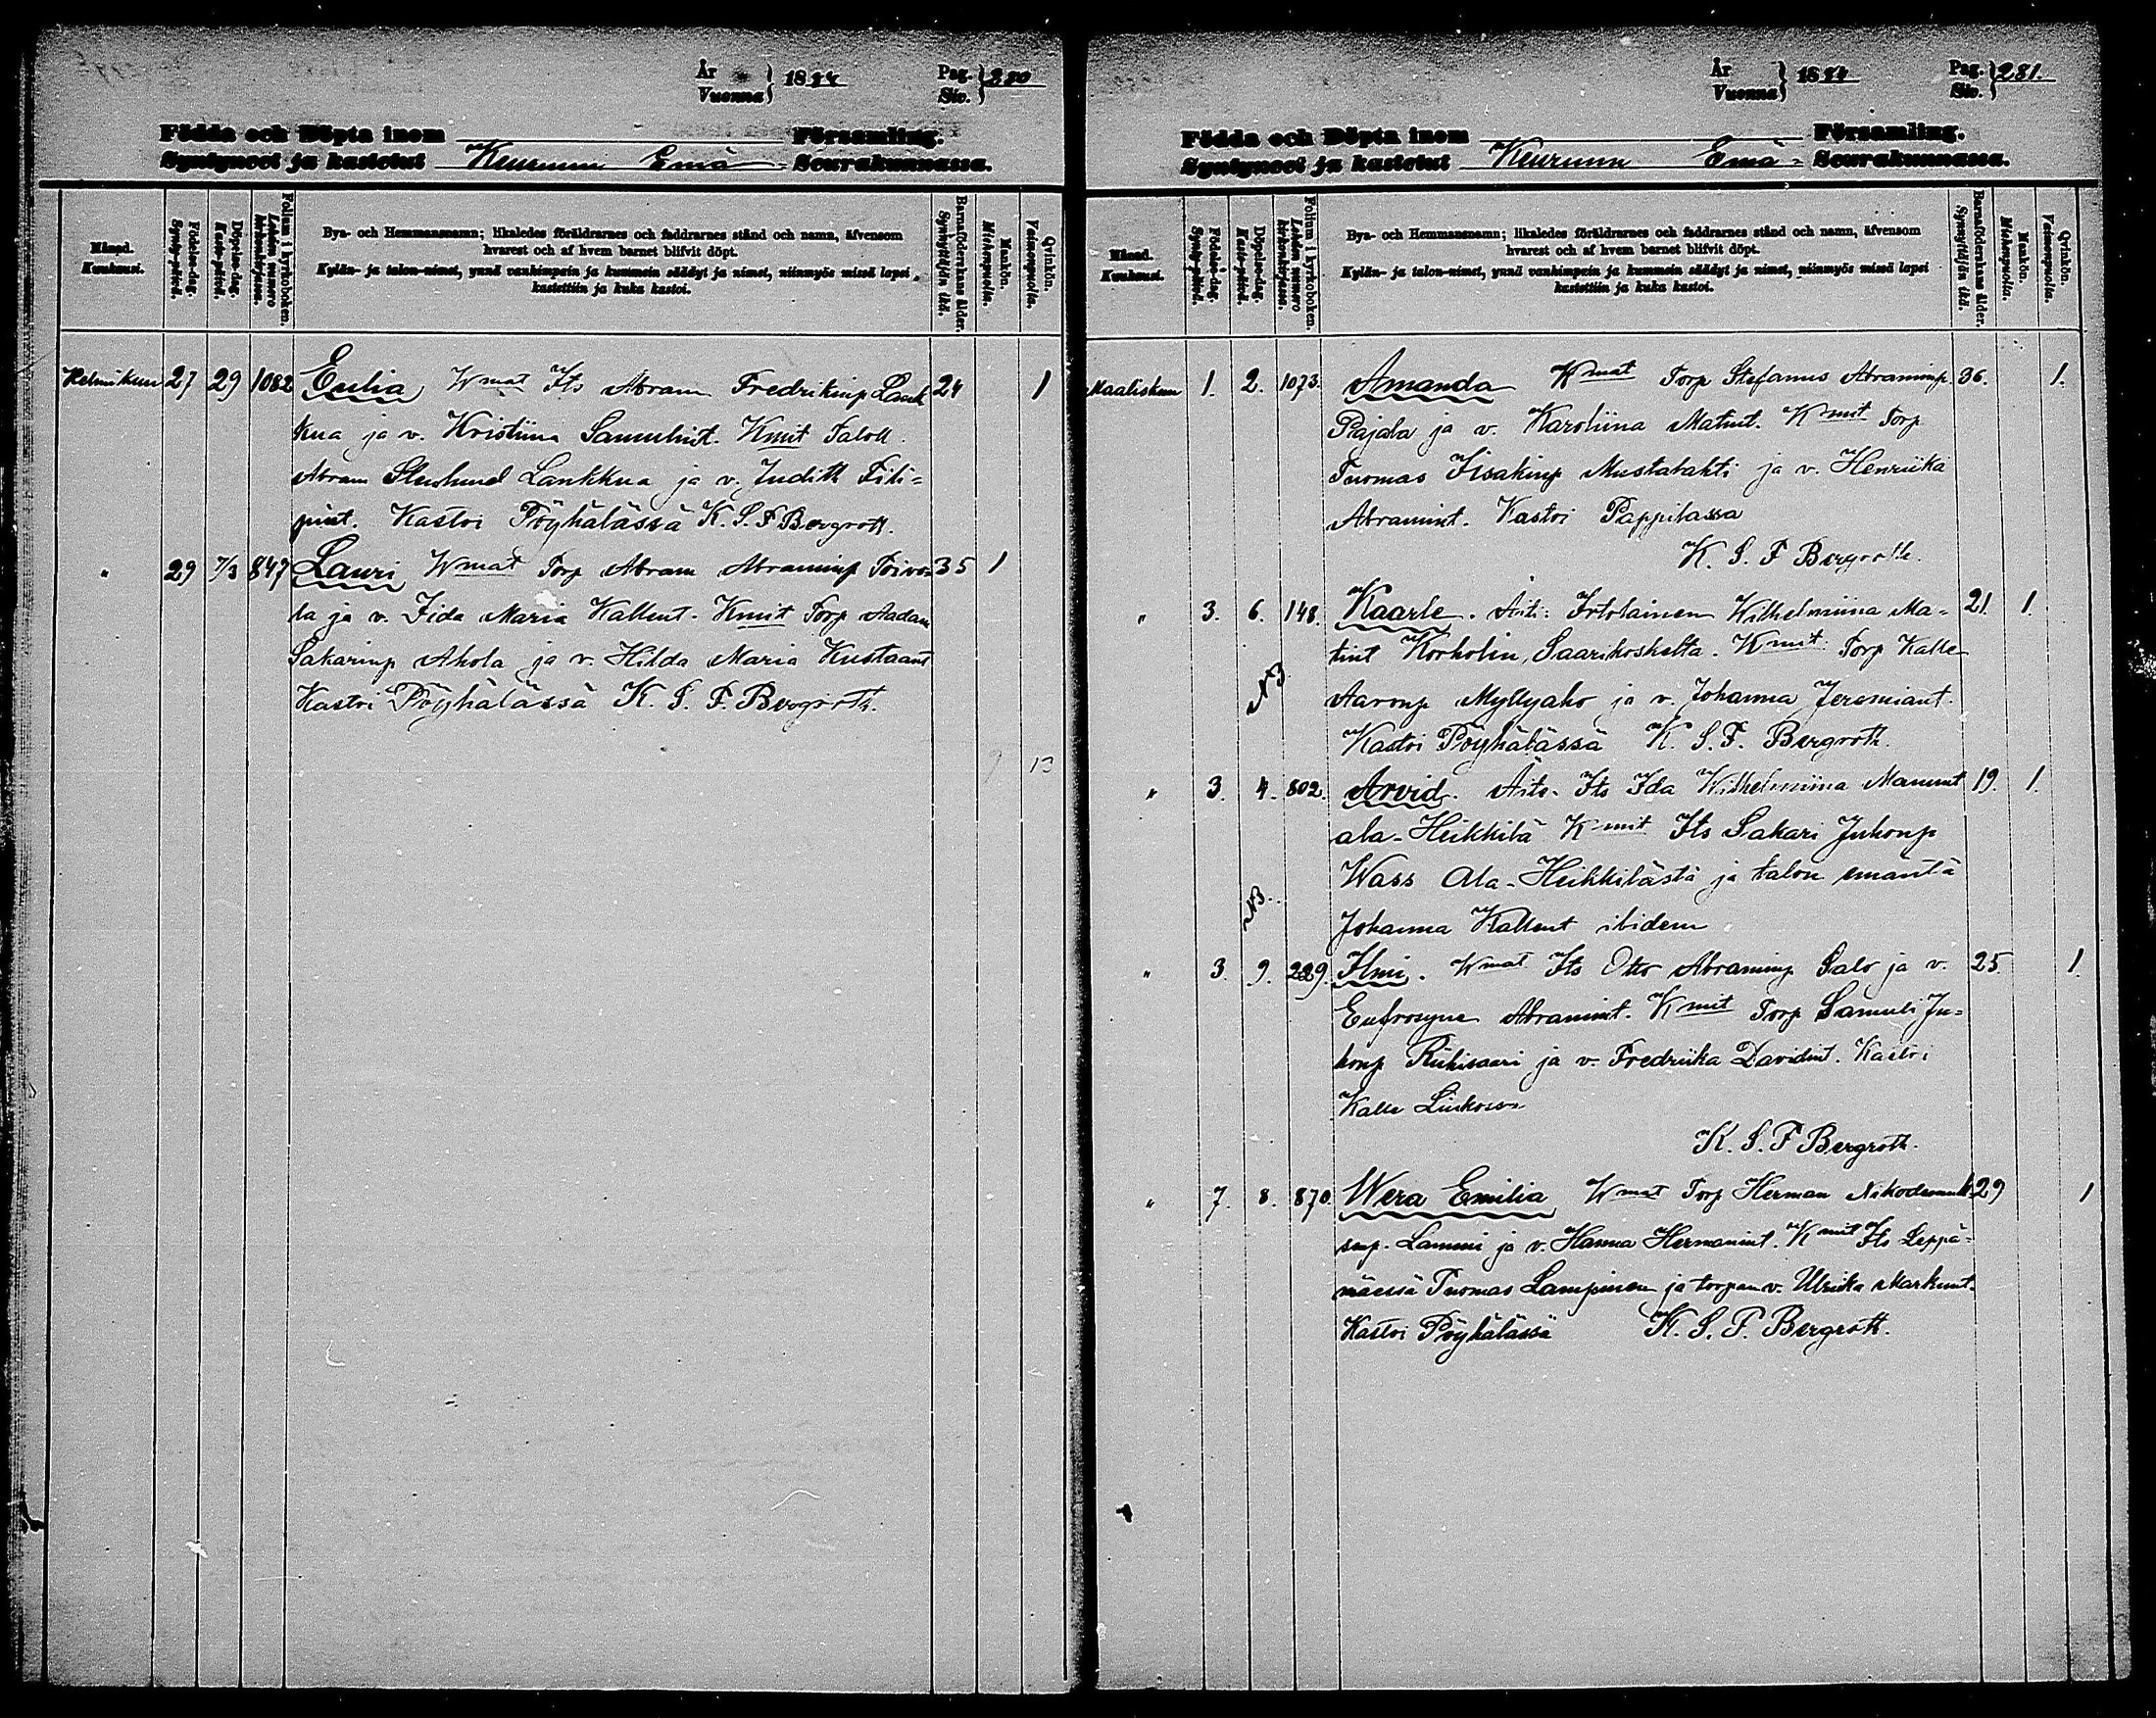 År
Vuonna } 1884
Pag.
Siv. } 280
Födda och Döpta inom Församling.
Syntyneet ja kastetut Keuruun Emä- Seurakunnassa.
Månad. Kuukausi.
Födelse-dag. Synty-päivä.
Döpelse-dag. Kaste-päivä.
Folium i kyrkoboken. Lehden numero kirkonkirjassa.
Bya- och Hemmansnamn; likaledes föräldrarnes och faddrarnes stånd och namn, äfvensom
hvarest och af hvem barnet blifvit döpt.
Kylän- ja talon-nimet, ynnä vanhimpain ja kummein säädyt ja nimet, niinmyös missä lapsi
kastettiin ja kuka kastoi.
Barnaföderskans ålder. Synnyttäjän ikä.
Mankön. Miehenpuolia.
Qvinkön. Vaimonpuolia.
Helmikuu 27 29 1082 Eulia Wmat Its Abram Fredrikinp Lauk 24 1
kua ja v. Kristiina Samulint. Kmit Taloll.
Abram Lankkua ja v. Judith Fili=
pint. Kastoi Pöyhälässä K. S. F Bergroth.
" 29 7/3 847 Lauri Wmat Torp Abram Abraminp Toivo= 35 1
la ja v. Iida Maria Kallent. Kmit Torp Aadam
Sakarinp Ahola ja v. Hilda Maria Kustaant
Kastoi Pöyhälässä K. S. F. Bergroth.
9 13
År
Vuonna } 1884
Pag.
Siv. } 281.
Födda och Döpta inom Församling.
Syntyneet ja kastetut Keuruun Emä- Seurakunnassa.
Månad. Kuukausi.
Födelse-dag. Synty-päivä.
Döpelse-dag. Kaste-päivä.
Folium i kyrkoboken. Lehden numero kirkonkirjassa.
Bya- och Hemmansnamn; likaledes föräldrarnes och faddrarnes stånd och namn, äfvensom
hvarest och af hvem barnet blifvit döpt.
Kylän- ja talon-nimet, ynnä vanhimpain ja kummein säädyt ja nimet, niinmyös missä lapsi
kastettiin ja kuka kastoi.
Barnaföderskans ålder. Synnyttäjän ikä.
Mankön. Miehenpuolia.
Qvinkön. Vaimonpuolia.
Maaliskuu 1. 2. 1073. Amanda Wmat Torp Stefanus Abraminp. 36. 1.
Pajala ja v. Karoliina Matint. Kmit Torp
Tuomas Iisakinp Mustalahti ja v. Henriika
Abramint. Kastoi Pappilassa
K. S. F Bergroth.
" 3. 6. 148. Kaarle. Äiti: Irtolainen Wilhelmiina Ma= 21. 1.
tint Korholin, Saarikoskelta. Kmit: Torp Kalle
NB Aaronp Myllyaho ja v. Johanna Jeremiant.
Kastoi Pöyhälässä K. S. F. Bergroth.
" 3. 4. 802. Arvid. Äiti- Its Ida Wilhelmiina Manunt 19. 1.
ala-Heikkilä Kmit Its Sakari Juhonp
Wass Ala-Heikkilästä ja talon emäntä
NB.. Johanna Kallent ibidem
" 3. 9. 229. Ilmi. Wmat Its Otto Abraminp Salo ja v. 25 1.
Eufrosyne Abramint. Kmit Torp Samuli Ju=
honp Riihisaari ja v. Fredriika Davidint. Kastoi
Kalle
K. S. F Bergroth.
" 7. 8. 870. Wera Emilia Wmat Torp Herman Nikodemuk 29 1
snp. Lammi ja v. Hanna Hermanint. Kmit Its Leppä=
mäessä Tuomas Lampinen ja torpan v. Ulrika Markunt.
Kastoi Pöyhälässä K. S. F. Bergroth.